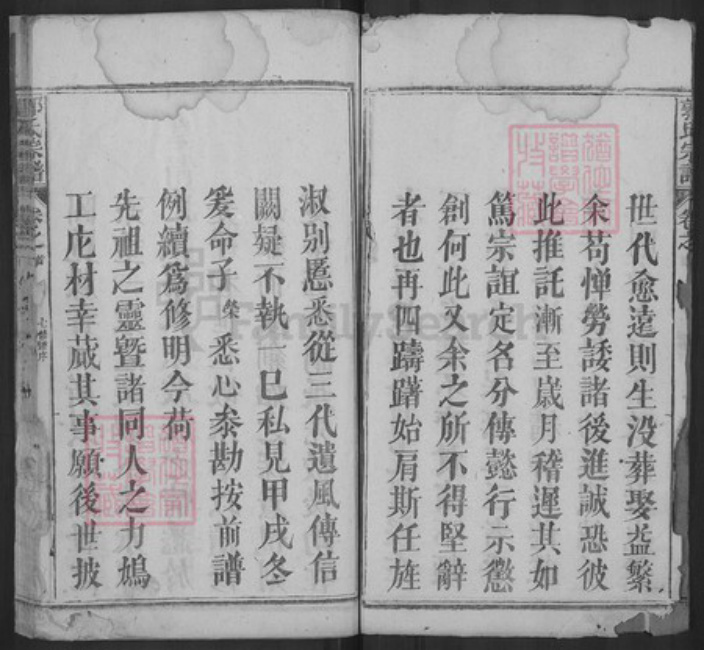 世代愈遠則生没葬娶益繁
余苟憚勞諉諸後進誠恐彼
此推託漸至歲月稽遲其如
篤宗誼定名分傳懿行示懲
創何此又余之所不得堅辭
者也再四躊躇始肩斯任旌
淑别慝悉從三代遺風傳信
闕疑不執巳私見甲戌冬
爰命子榮悉心叅勘按前譜
例續爲修明今荷
先祖之靈曁諸同人之力鳩
工庀材幸蕆其事願後世披
郭氏宗譜
卷之
FamilySearch